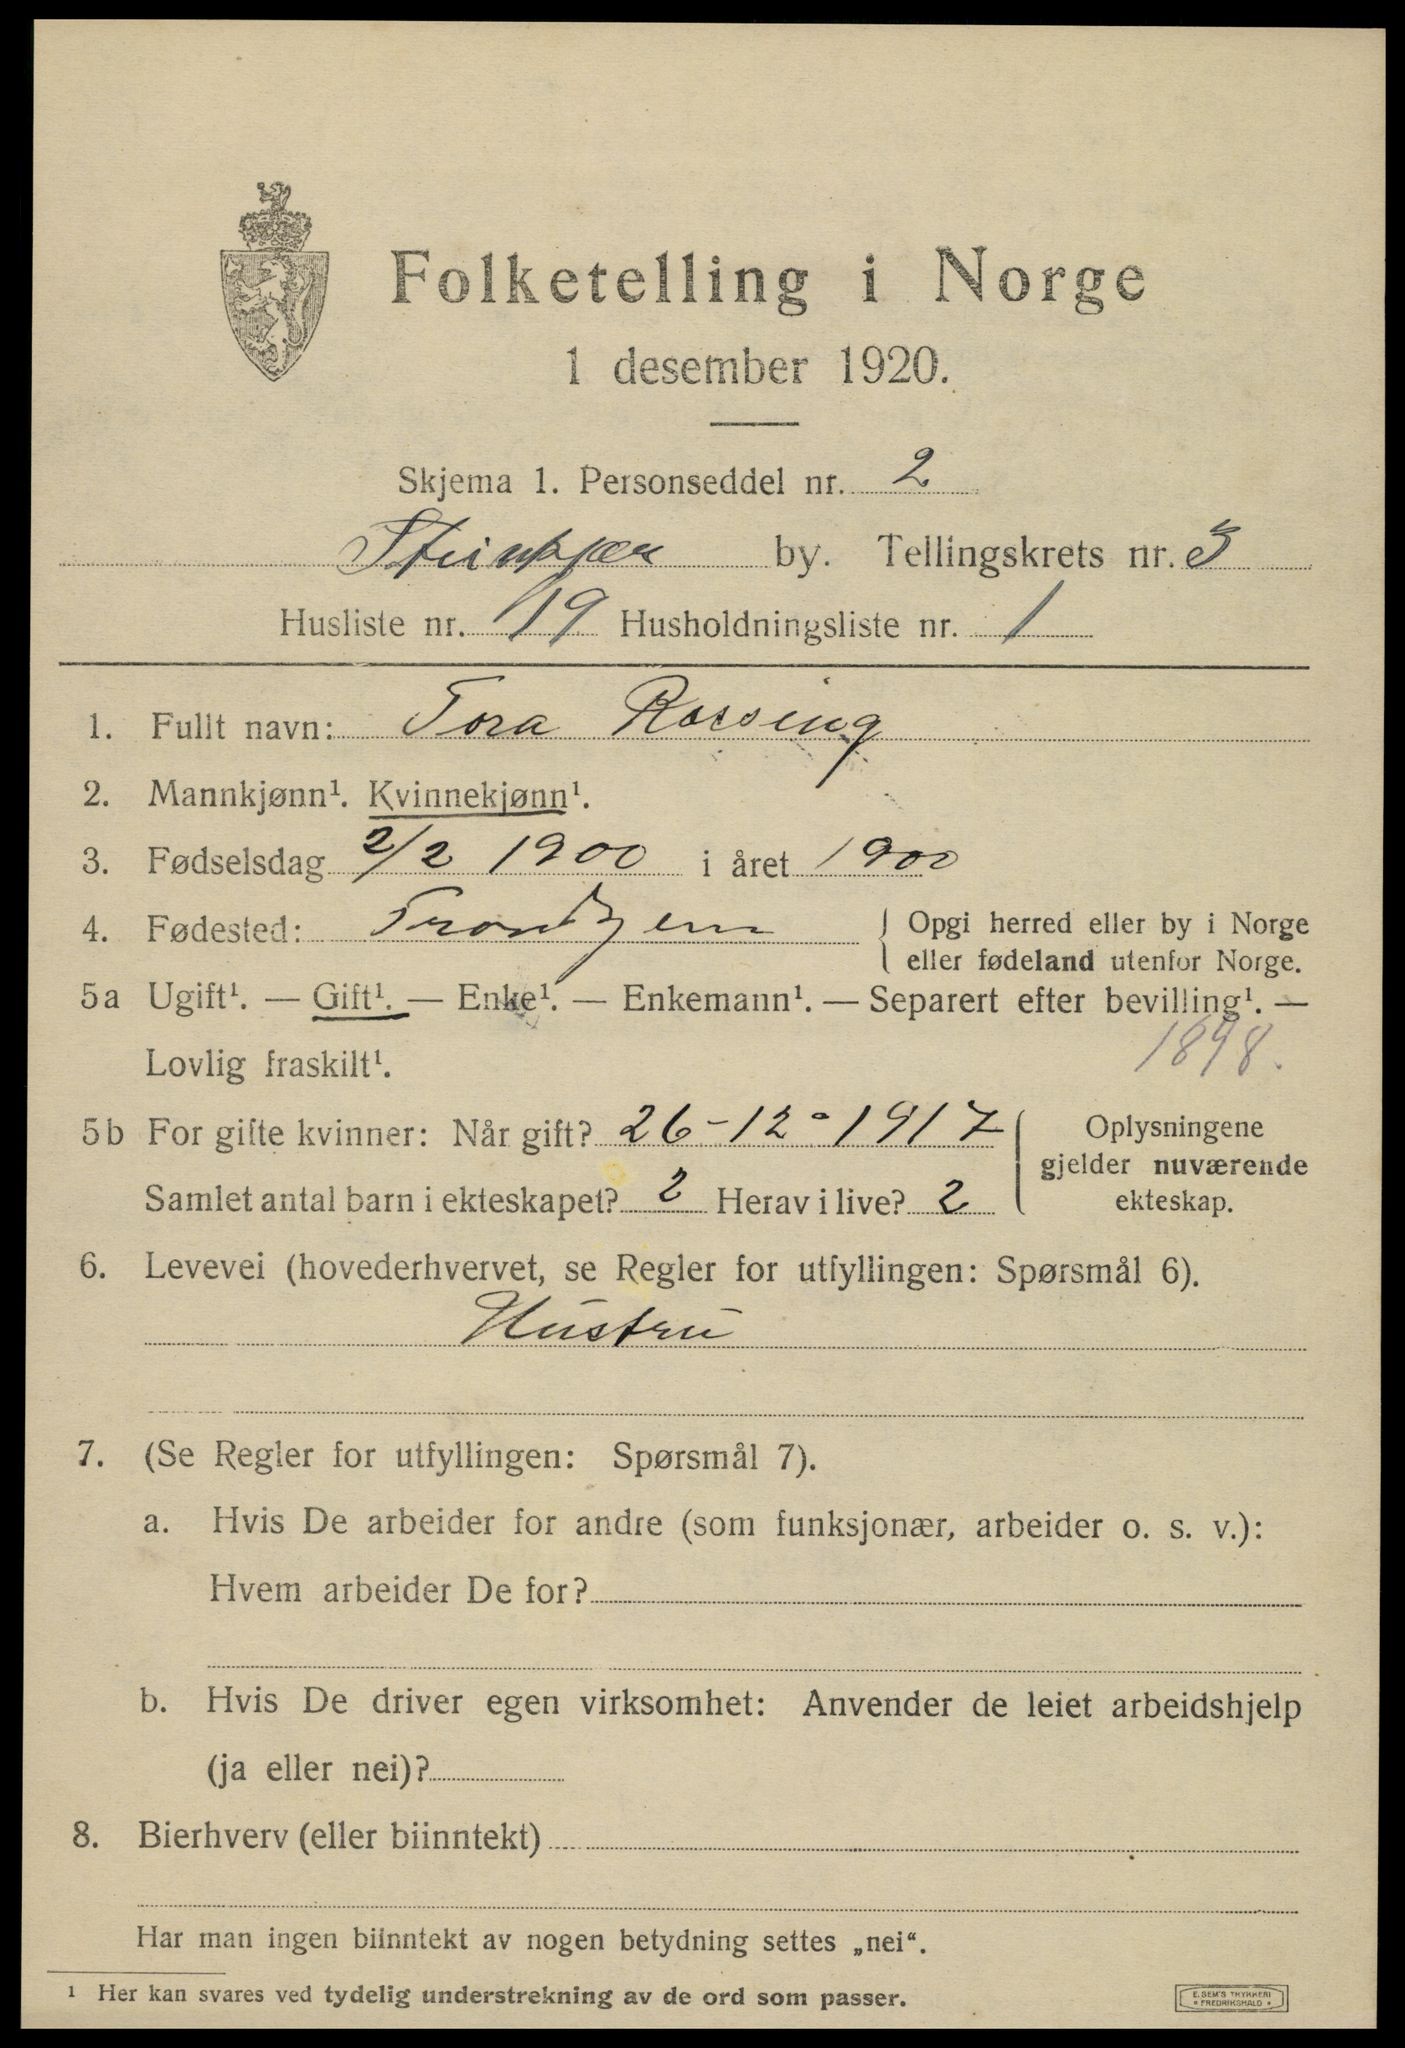 Folketelling i Norge
1 desember 1920.
Skjema 1. Personseddel nr. 2
Steinkjer by. Tellingskrets nr. 3
Husliste nr. 19 Husholdningsliste nr. 1
1. Fullt navn: Tora Rossing
2. Mannkjønn¹. Kvinnekjønn¹.
3. Fødselsdag 2/2 1900 i året 1900
4. Fødested: Trondhjem { Opgi herred eller by i Norge
eller fødeland utenfor Norge.
5a Ugift¹. — Gift¹. — Enke¹. — Enkemann¹. — Separert efter bevilling¹. —
Lovlig fraskilt¹. 1898.
5b For gifte kvinner: Når gift? 26-12-1917
Samlet antal barn i ekteskapet? 2 Herav i live? 2
Oplysningene
gjelder nuværende
ekteskap.
6. Levevei (hovederhvervet, se Regler for utfyllingen: Spørsmål 6).
Hustru
7. (Se Regler for utfyllingen: Spørsmål 7).
a. Hvis De arbeider for andre (som funksjonær, arbeider o. s. v.):
Hvem arbeider De for?
b. Hvis De driver egen virksomhet: Anvender de leiet arbeidshjelp
(ja eller nei)?
8. Bierhverv (eller biinntekt)
Har man ingen biinntekt av nogen betydning settes „nei“.
¹ Her kan svares ved tydelig understrekning av de ord som passer.
E. SEM'S TRYKKERI
FREDRIKSHALD